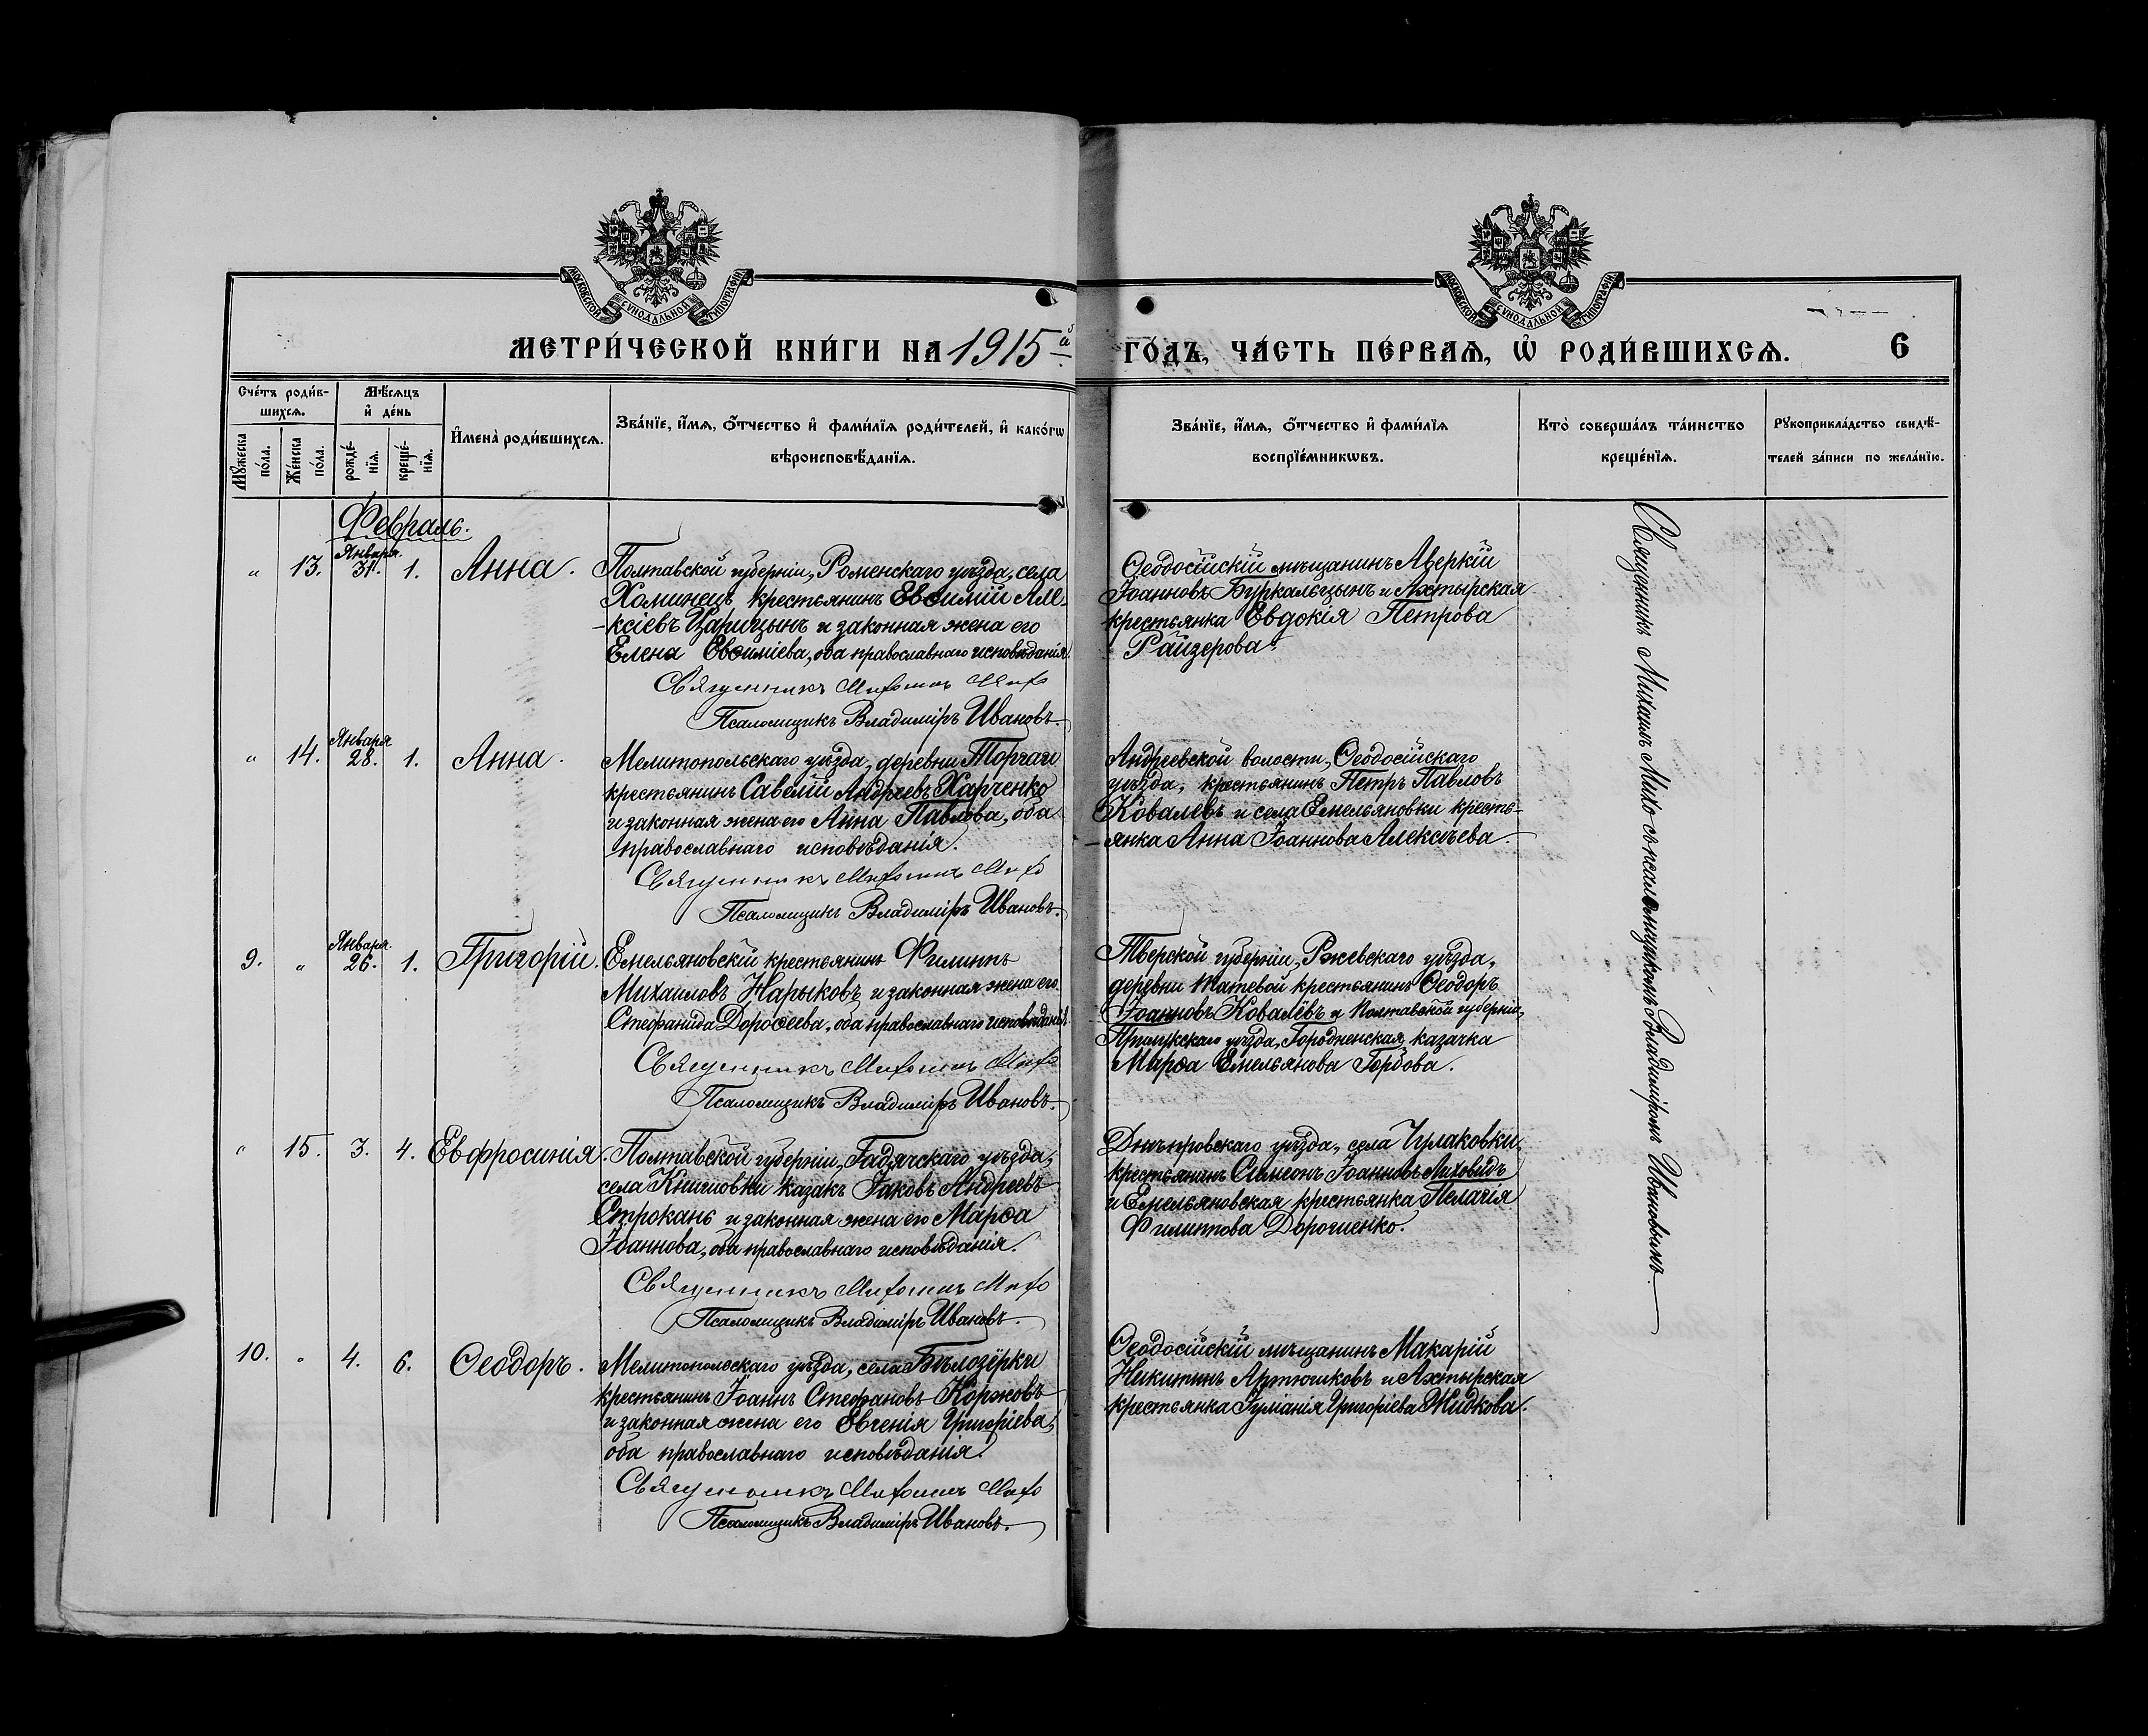 МОСКОВСКОЙ СѴНОДАЛЬНОЙ ТИПОГРАФІИ
МОСКОВСКОЙ СѴНОДАЛЬНОЙ ТИПОГРАФІИ
МЕТРИ́ЧЕСКОЙ КНИ́ГИ НА 1915 й
ГО́ДЪ, ЧА́СТЬ ПЕ́РВАѦ, Ѽ РОДИ́ВШИХСѦ. 6
Сче́тъ роди́в-
шихсѧ.
Мѣ́сѧцъ
и҆ де́нь
Мꙋ́жеска
по́ла.
Же́нска
по́ла.
рожде́-
нїѧ.
креще́-
нїѧ.
И҆мена̀ роди́вшихсѧ.
Зва́нїе, и҆́мѧ, ѻ҆́тчество и҆ фами́лїѧ роди́телей, и҆ како́гѡ
вѣроисповѣ́данїѧ.
Зва́нїе, и҆́мѧ, ѻ҆́тчество и҆ фами́лїѧ
воспрїе́мникѡвъ.
Кто̀ соверша́лъ та́инство
креще́нїѧ.
Рꙋкоприкла́дство свидѣ́-
телей за́писи по жела́нїю.
Февраль.
" 13. Января 31. 1. Анна.
Полтавской губерніи, Роменскаго уѣзда, села
Хоминецъ крестьянинъ Евѳимій Але-
-ксіевъ Царицынъ и законная жена его
Елена Евѳиміева, оба православнаго исповѣданія.
Священникъ Михаилъ Михо
Псаломщикъ Владиміръ Ивановъ.
Ѳеодосійскій мѣщанинъ Аверкій
Іоанновъ Буркальцынъ и Ахтырская
крестьянка Евдокія Петрова
Райзерова.
Священникъ Михаилъ Михо съ псаломщикомъ Владиміромъ Ивановымъ.
" 14. Января 28. 1. Анна.
Мелитопольскаго уѣзда, деревни Торгаи
крестьянинъ Савелій Андреевъ Харченко
и законная жена его Анна Павлова, оба
православнаго исповѣданія.
Священникъ Михаилъ Михо
Псаломщикъ Владиміръ Ивановъ.
Андреевской волости, Ѳеодосійскаго
уѣзда, крестьянинъ Петръ Павловъ
Ковалевъ и села Емельяновки кресть-
-янка Анна Іоаннова Алексѣева.
9. " Января 26. 1. Григорій.
Емельяновскій крестьянинъ Филиппъ
Михаиловъ Нарыковъ и законная жена его
Стефанида Дороѳеева, оба православнаго исповѣданія.
Священникъ Михаилъ Михо
Псаломщикъ Владиміръ Ивановъ.
Тверской губерніи, Ржевскаго уѣзда,
деревни Матевой крестьянинъ Ѳеодоръ
Іоанновъ Ковалёвъ и Полтавской губерніи,
Прилукскаго уѣзда, Городненская казачка
Марѳа Емельянова Горбова.
" 15. 3. 4. Евфросинія.
Полтавской губерніи, Гадячскаго уѣзда,
села Книшовки казакъ Іаковъ Андреевъ
Строкань и законная жена его Марѳа
Іоаннова, оба православнаго исповѣданія.
Священникъ Михаилъ Михо
Псаломщикъ Владиміръ Ивановъ.
Днѣпровскаго уѣзда, села Чулаковки,
крестьянинъ Симеонъ Іоанновъ Лиховидъ
и Емельяновская крестьянка Пелагія
Филиппова Дорошенко.
10. " 4. 6. Ѳеодоръ.
Мелитопольскаго уѣзда, села Бѣлозёрки
крестьянинъ Іоаннъ Стефановъ Коржовъ
и законная жена его Евгенія Григоріева,
оба православнаго исповѣданія.
Священникъ Михаилъ Михо
Псаломщикъ Владиміръ Ивановъ.
Ѳеодосійскій мѣщанинъ Макарій
Никитинъ Артюшковъ и Ахтырская
крестьянка Іуліанія Григоріева Жидкова.